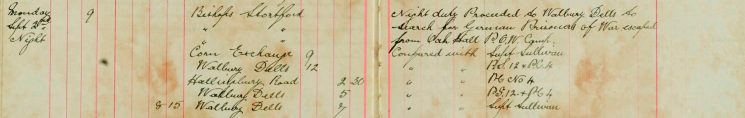 Monday 9 Bishops Stortford Night duty Proceeded to Walbury Dells to
Sept 2nd " " search for German Prisoners of War escaped
Night " from Oak Hall P.O.W. Camp.
Corn Exchange 9 Conferred with Supt Sullivan
Walbury Dells 12 " " P.S. 12 + P.C. 4
Hallingbury Road 2-30 " " P.C. No 4
Walbury Dells 5 " " P.S. 12 + P.C. 4
8-15 Walbury Dells 7 " " Supt Sullivan